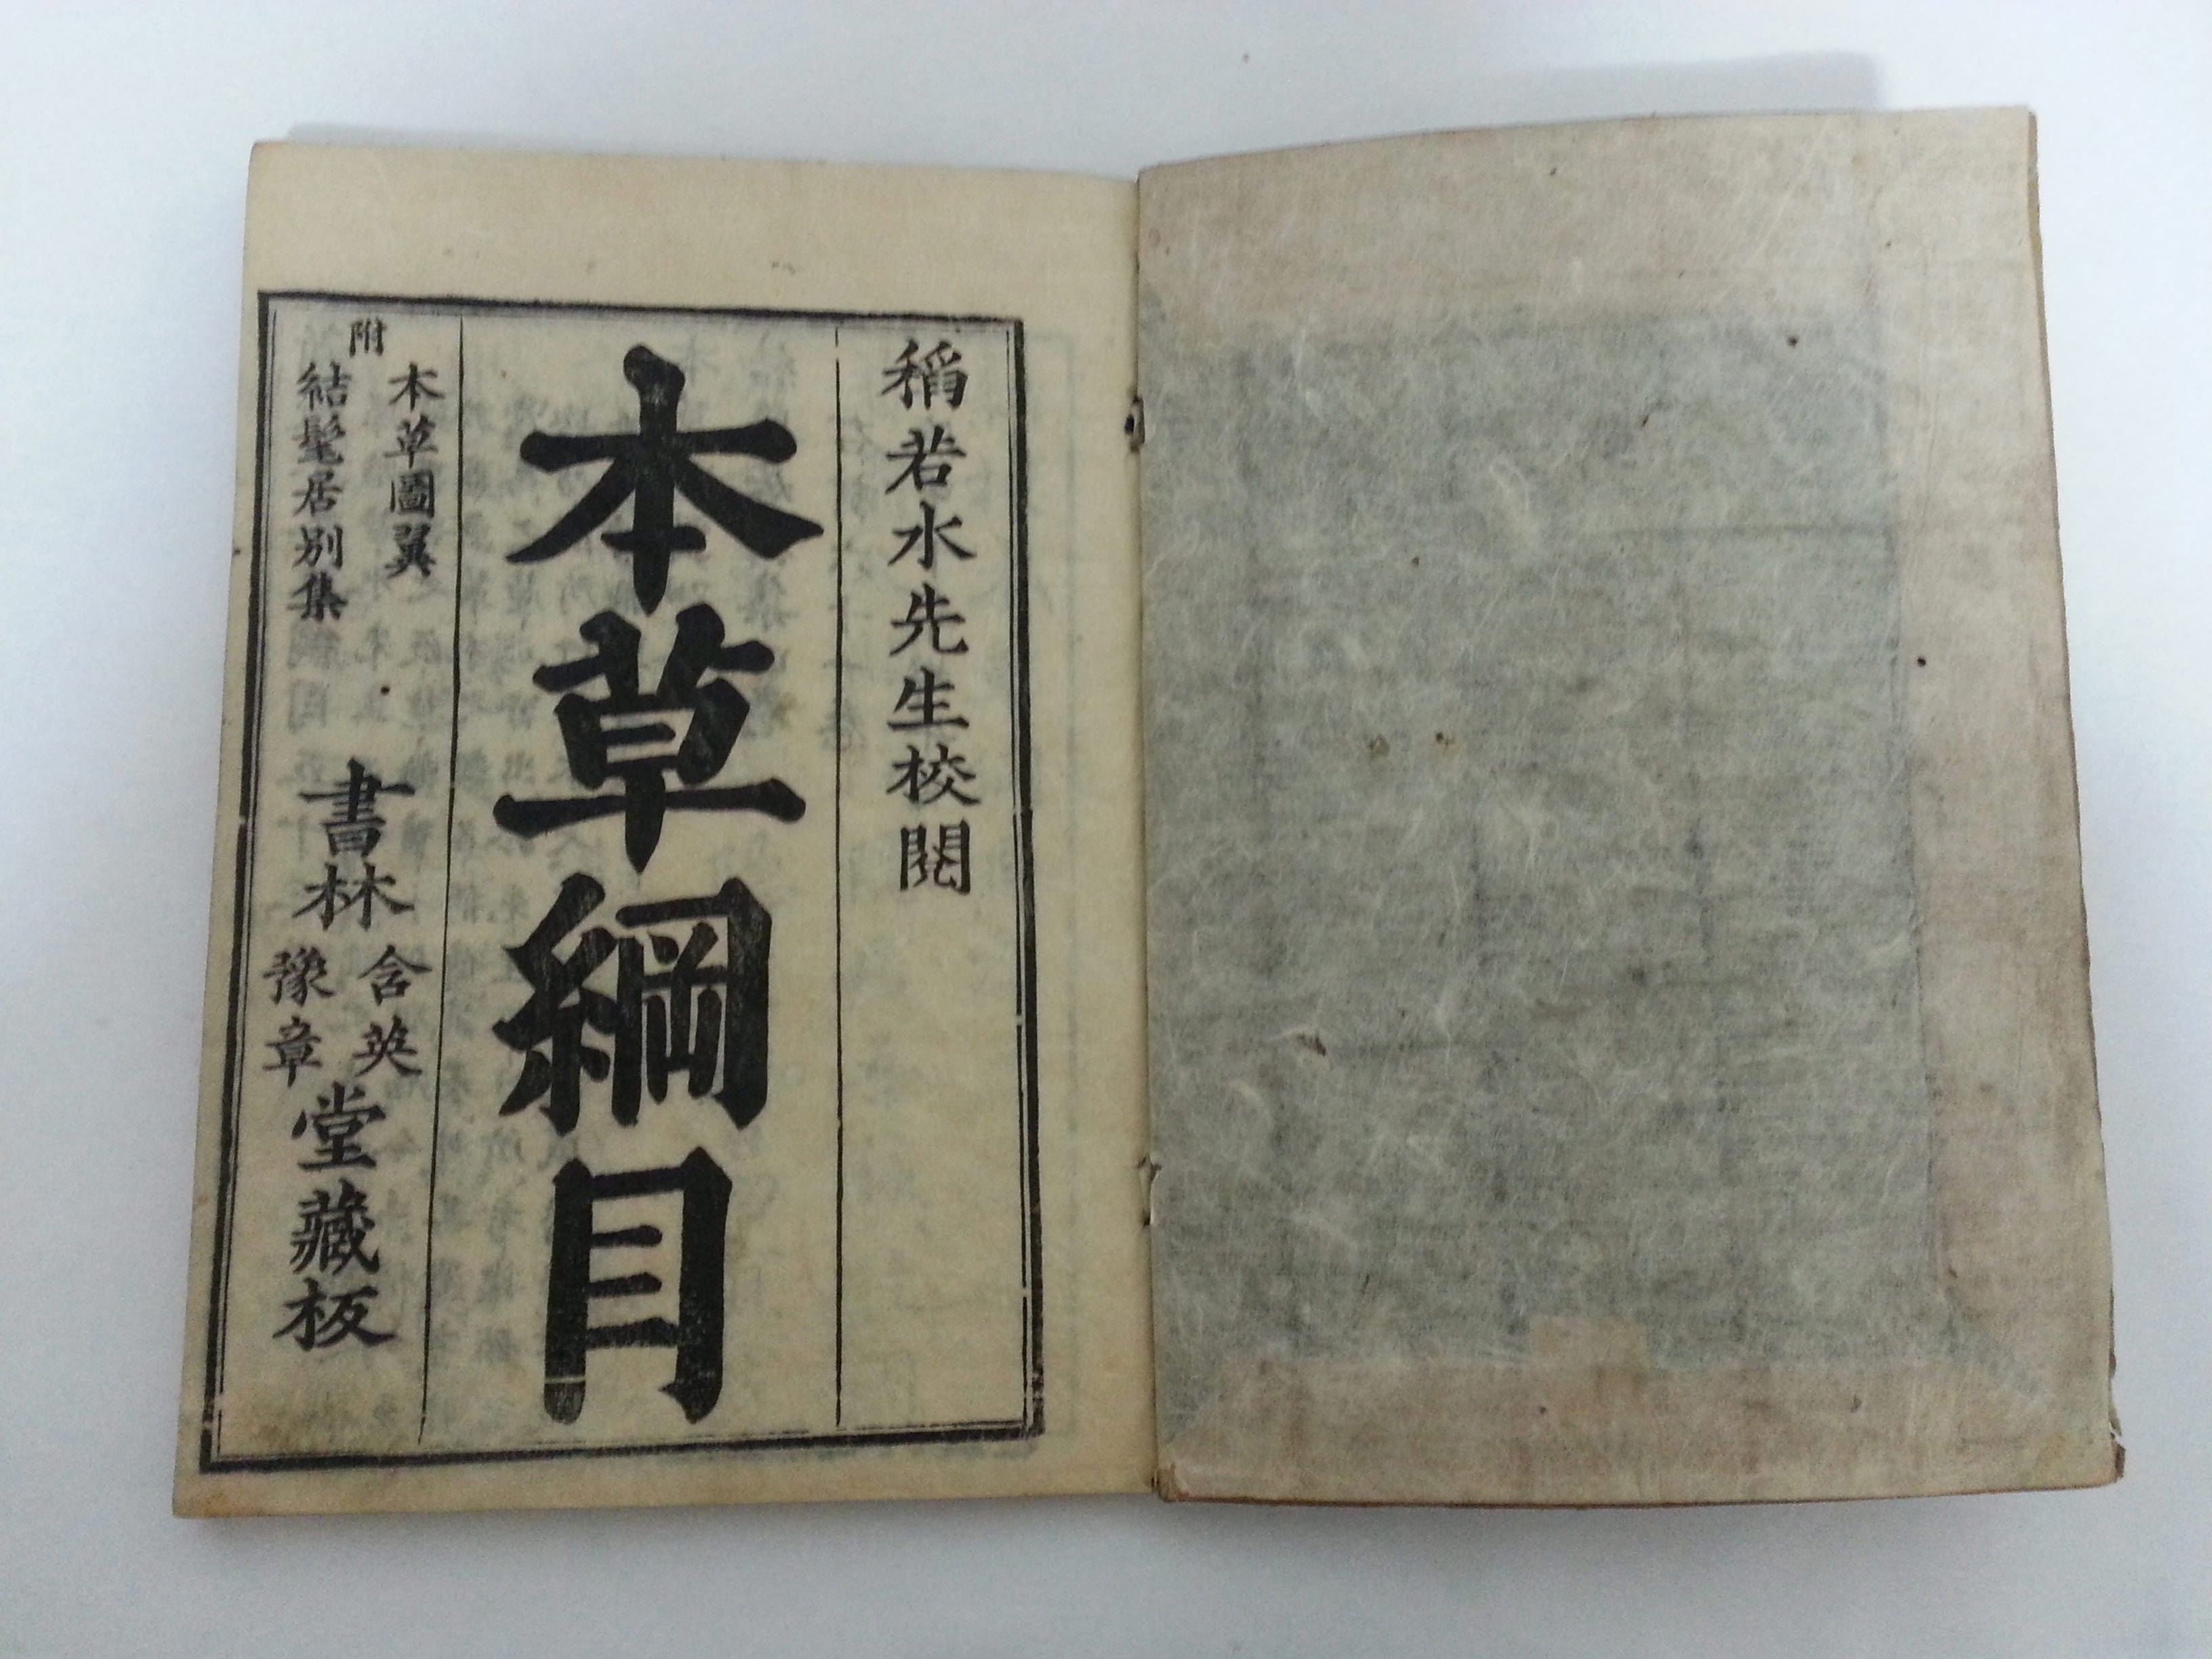 稻若水先生校閱
本草綱目
附
本草圖翼
結髦居別集
書林
含英
豫章
堂藏板